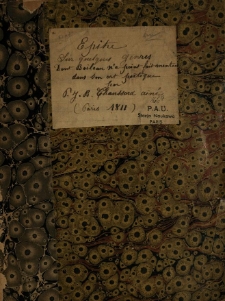 Epître
Sur Quelques Genres
dont Boileau n'a point fait mention
dans son art poétique
par
P. J. B. Chaussard ainé
(Paris 1811)
P.A.C.
PARIS